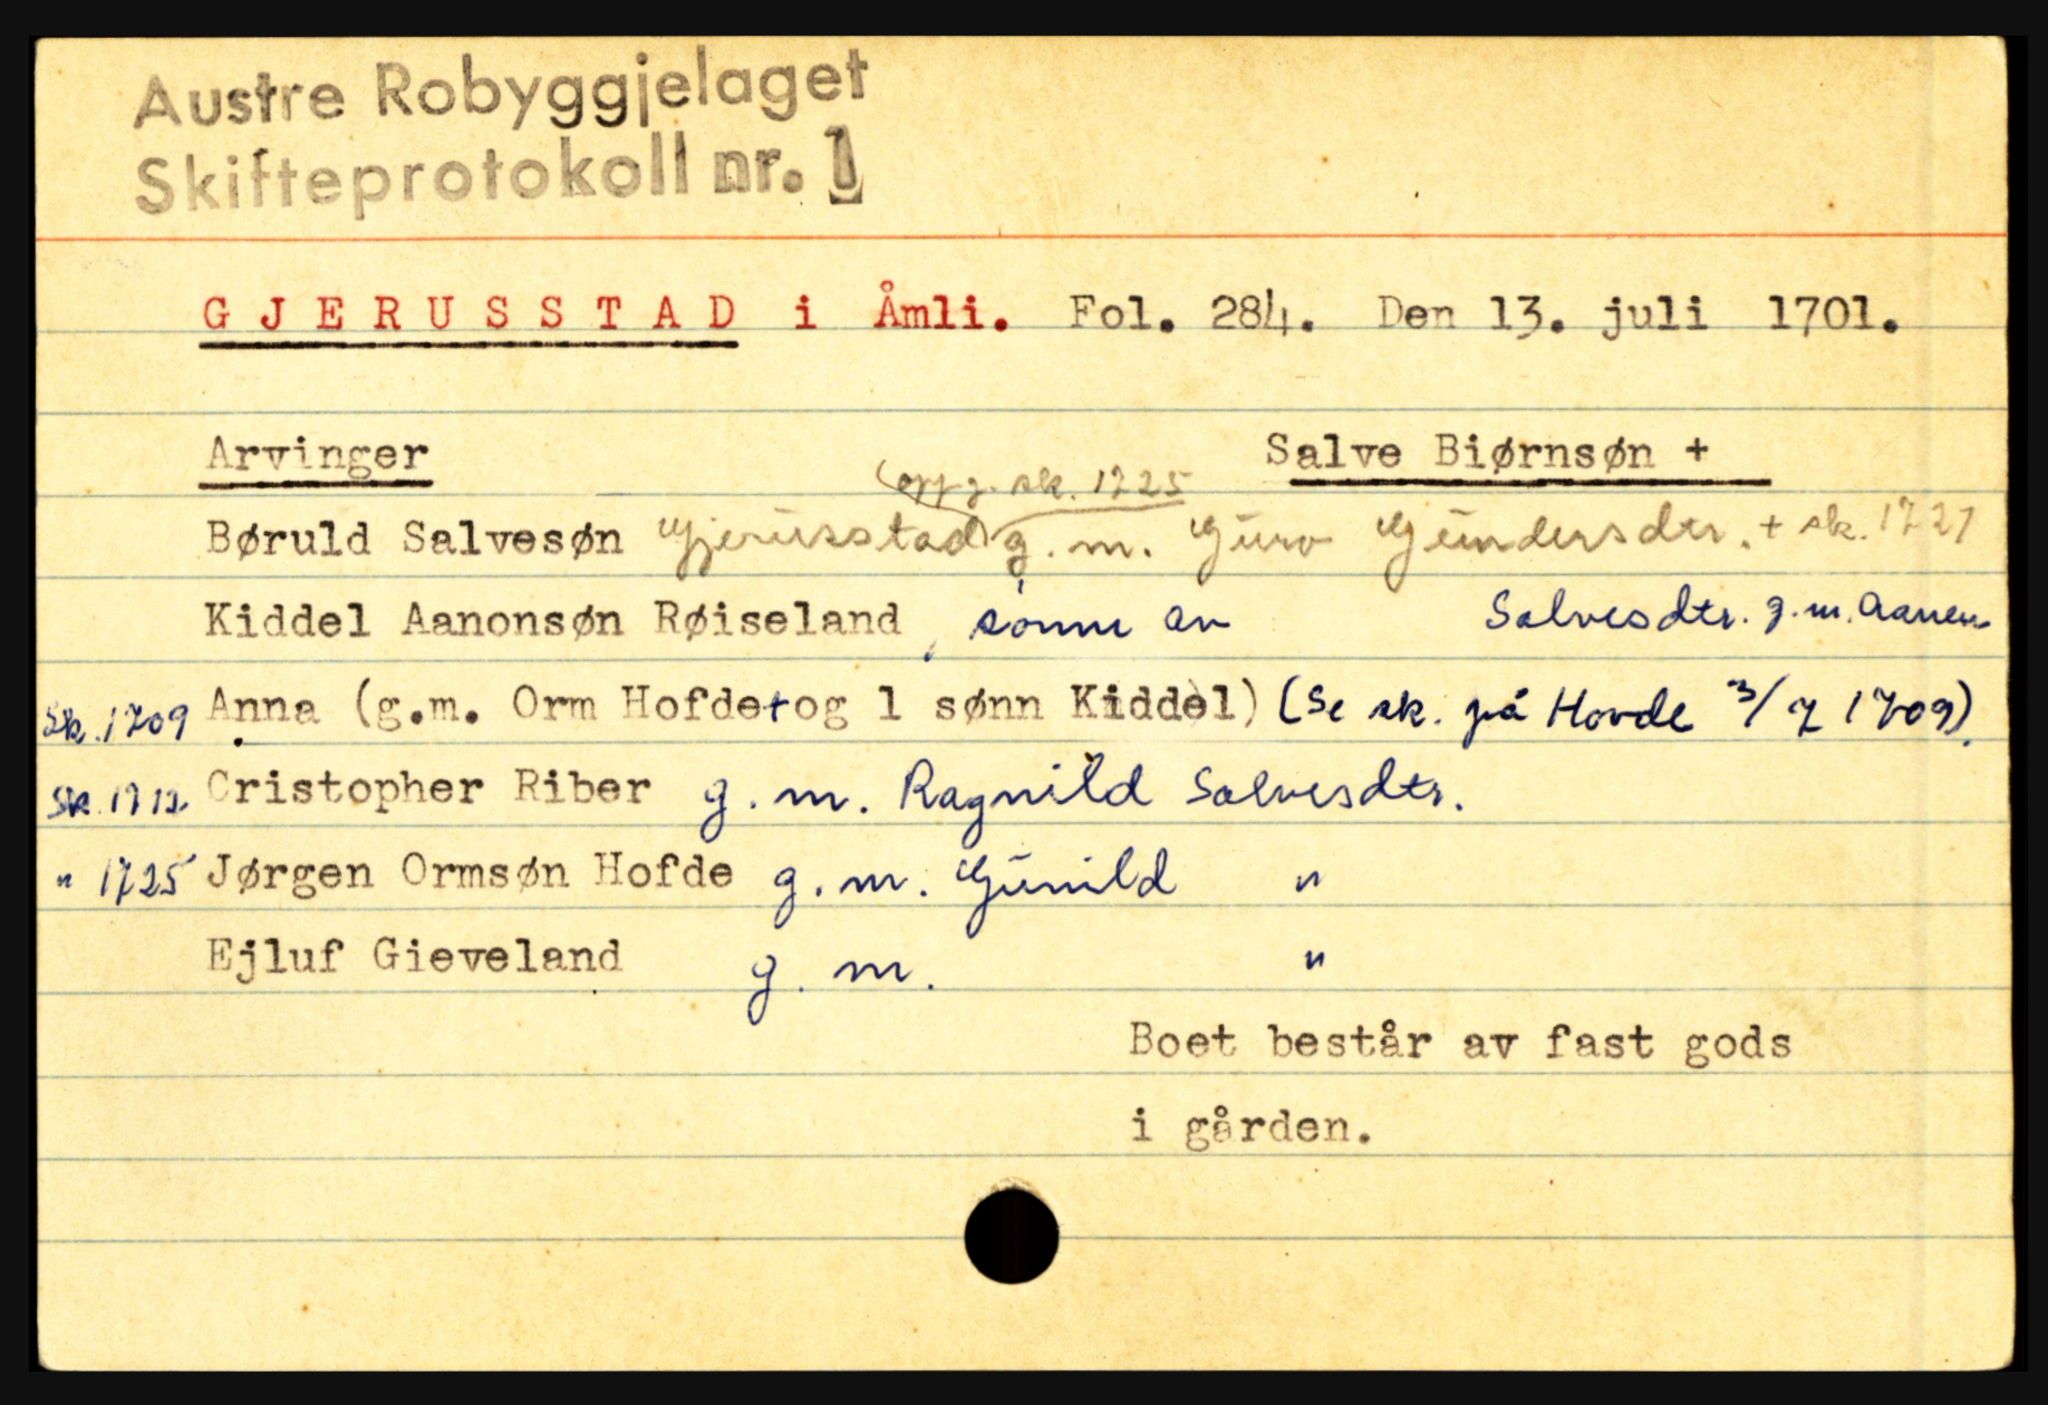 Austre Robyggjelaget
Skifteprotokoll nr. 1
GJERUSSTAD i Åmli. Fol. 284. Den 13. juli 1701.
Arvinger Salve Biørnsøn +
(oppg. sk. 1725
Børuld Salvesøn Gjerusstad) g. m. Guro Gundersdtr. + sk. 1721
Kiddel Aanonsøn Røiseland, sønn av Salvesdtr. g. m. Aanen
Sk. 1709 Anna (g.m. Orm Hofde+og 1 sønn Kiddel) (Se sk. på Hovde 3/7 1709).
Sk. 1712 Cristopher Riber g. m. Ragnild Salvesdtr.
" 1725 Jørgen Ormsøn Hofde g. m. Gunild "
Ejluf Gieveland g. m. "
Boet består av fast gods
i gården.